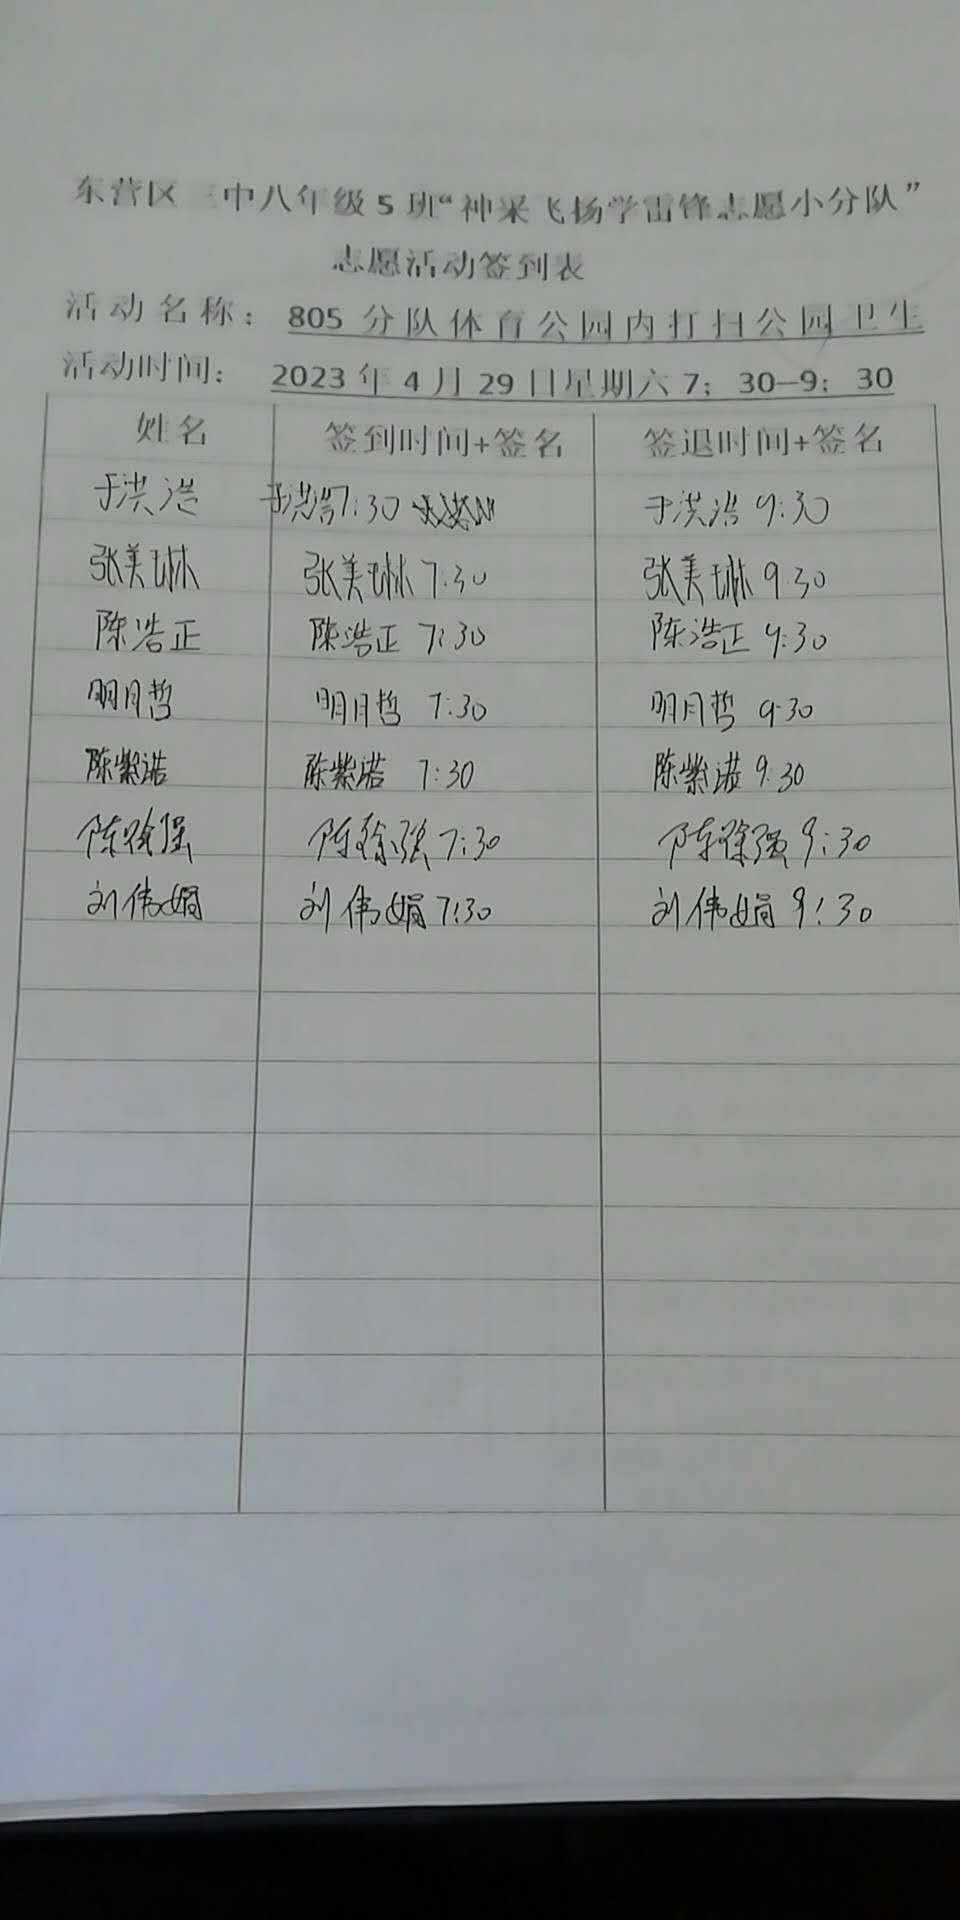 东营区三中八年级5班“神采飞扬学雷锋志愿小分队”
志愿活动签到表
活动名称：805分队体育公园内打扫公园卫生
活动时间：2023年4月29日星期六7：30—9：30
姓名 签到时间+签名 签退时间+签名
于洪浩 于洪浩7:30 于洪浩 9:30
张美琳 张美琳 7.30 张美琳 9.30
陈浩正 陈浩正 7:30 陈浩正 9:30
明月哲 明月哲 7:30 明月哲 9.30
陈紫诺 陈紫诺 7:30 陈紫诺 9.30
陈徐强 陈徐强 7:30 陈徐强 9:30
刘伟娟 刘伟娟 7:30 刘伟娟 9:30